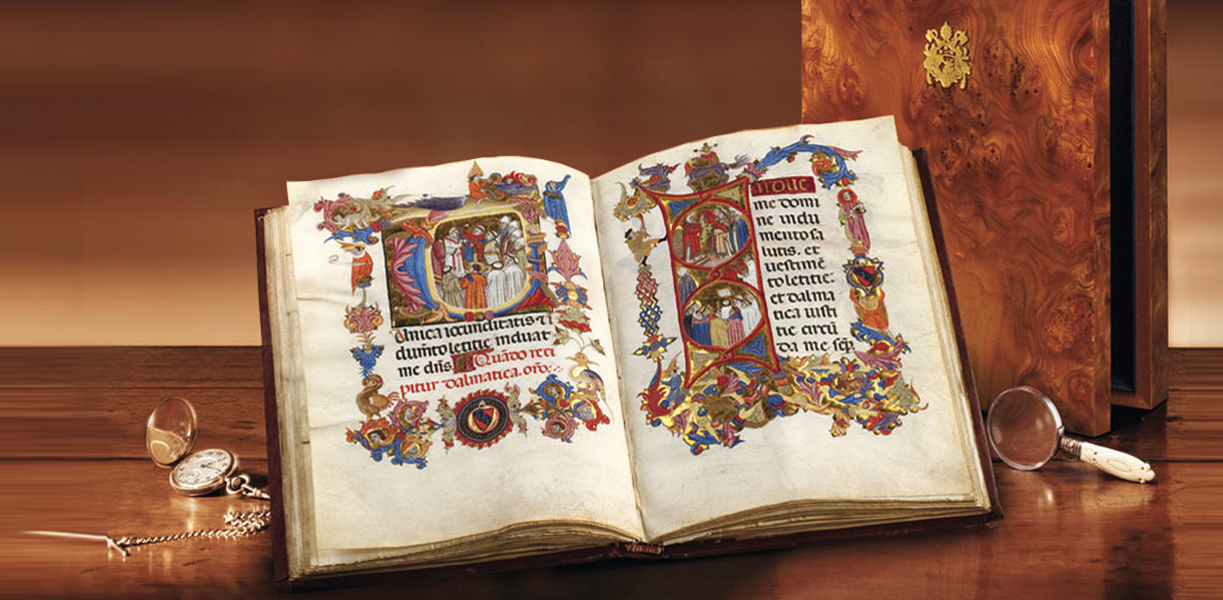 Unica iocunditatis. ti
dumto letitie induat
me dñs. Quãdo reci
pitur dalmatica. orõ.
Indue
me domi
ne indu
mento sa
lutis. et
uestimẽ
to letitie:
et dalma
tica iusti
tie circũ
da me sẽp̱.